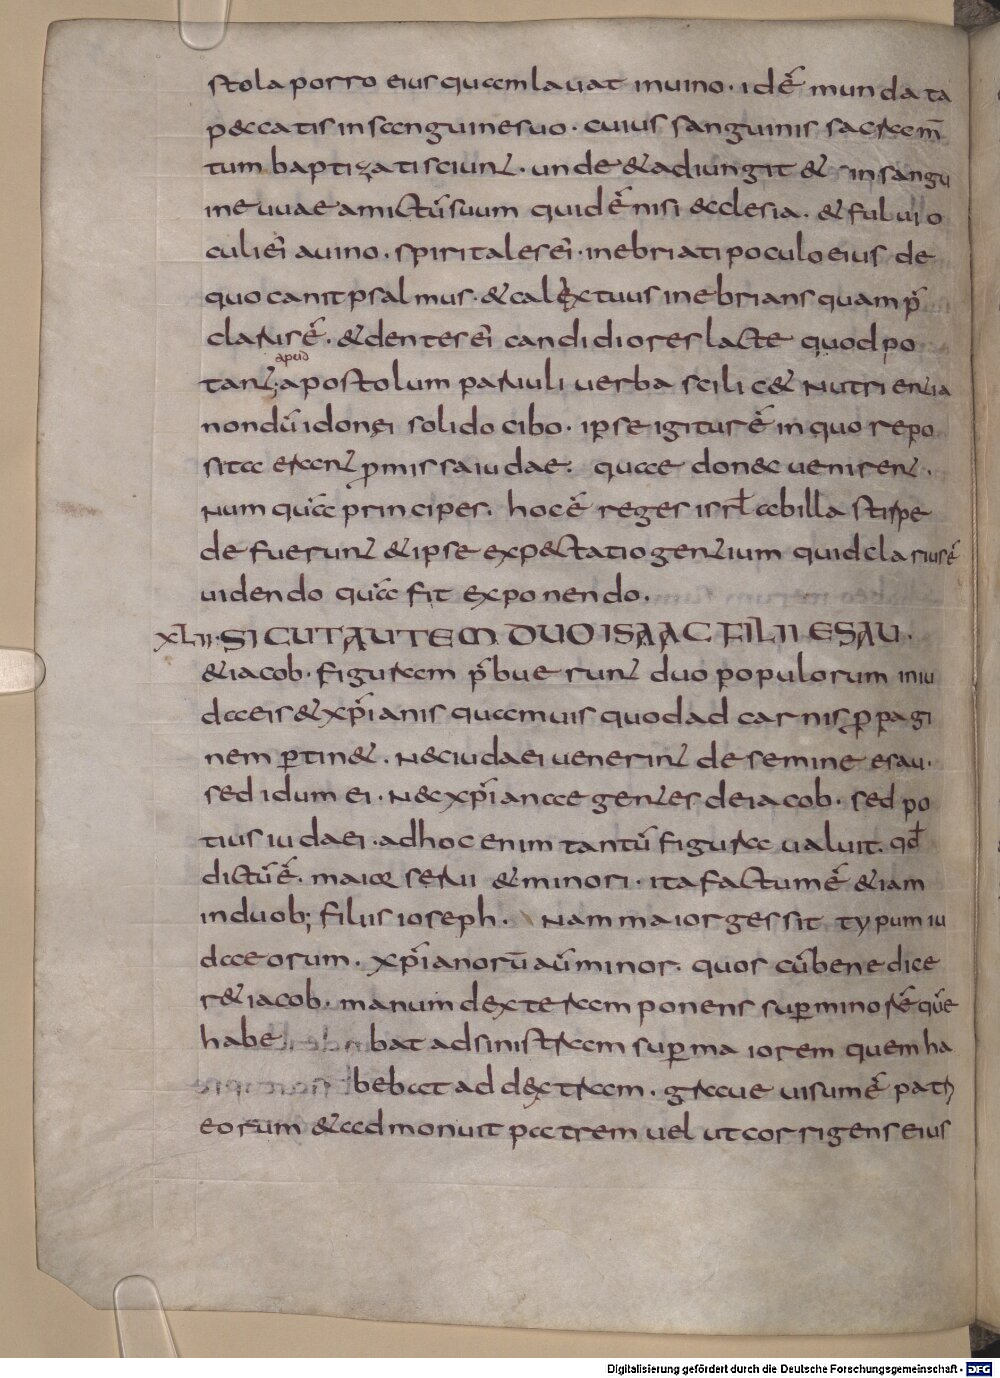 stola porro eius quam lauat inuino· idē mundata
peccatis insanguine suo· cuius sanguinis sacram̄
tum baptizati sciunt· unde & adiungit & in sangu
ine uuae amictū suum quid ē nisi ecclesia· & fuluio
culi ei auino· spiritales ei· inebriati poculo eius de
quo canit psalmus· & calix tuus inebrians quam p̄
clarus ē· & dentes ei candidiores lacte quod po
apud
tant· apostolum paruuli uerba scilic& nutrientia
nondū idonei solido cibo· ipse igitur ē in quo repo
sita erant p̄missa iudae· quae donec uenirent·
numquā principes· hoc ē reges isrl̄ ab illa stirpe
defuerunt & ipse exp&tatio gentium quid clarius ē
uidendo quā fit exponendo·
XLII· SICUT AUTEM DUO ISAAC FILII ESAU·
& iacob· figuram p̄buerunt duo populorum iniu
daeis & xp̄ianis quamuis quod ad carnis p̄pagi
nem ptin&· nec iudaei uenerint de semine esau·
sed idumei· nec xp̄ianae gentes de iacob· sed po
tius iudaei· ad hoc enim tantū figura ualuit· qd̄
dictū ē· maior seruii & minori· ita factum ē & iam
in duob; filiis ioseph· Nam maior gessit typum iu
daeorum· xp̄ianorū aū minor· quos cū benedice
r& iacob· manum dexteram ponens sup minorē quē
habe bat ad sinistram sup maiorem quem ha
bebat ad dextram· graue uisum ē patri
eorum & admonuit patrem uel ut corrigens eius
Digitalisierung gefördert durch die Deutsche Forschungsgemeinschaft - DFG